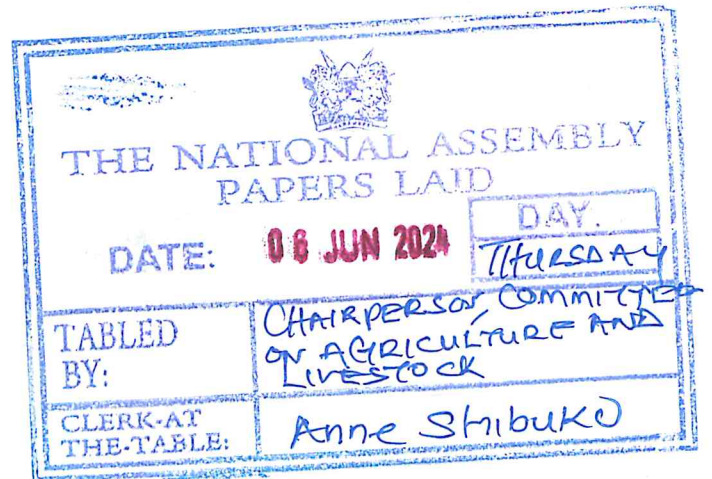 THE NATIONAL ASSEMBLY
PAPERS LAID
DATE: 06 JUN 2024
DAY.
THURSDAY
TABLED BY:
CHAIRPERSON, COMMITTEE
ON AGRICULTURE AND
LIVESTOCK
CLERK-AT
THE-TABLE:
Anne Shibuko